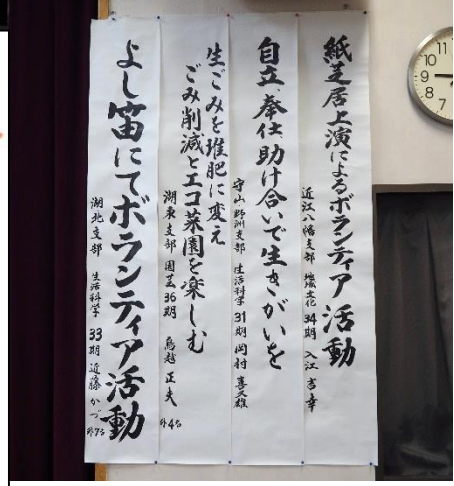 紙芝居上演によるボランティア活動
近江八幡支部 地域文化 34期 入江 吉幸
自立、奉仕、助け合いで生きがいを
守山・野洲支部 生活科学 31期 岡村 喜久雄
生ごみを堆肥に変え
ごみ削減とエコ菜園を楽しむ
湖東支部 園芸 36期 鳥越 正夫 外4名
よし笛にてボランティア活動
湖北支部 生活科学 33期 近藤 かづ 外7名
11
10
9
8
7